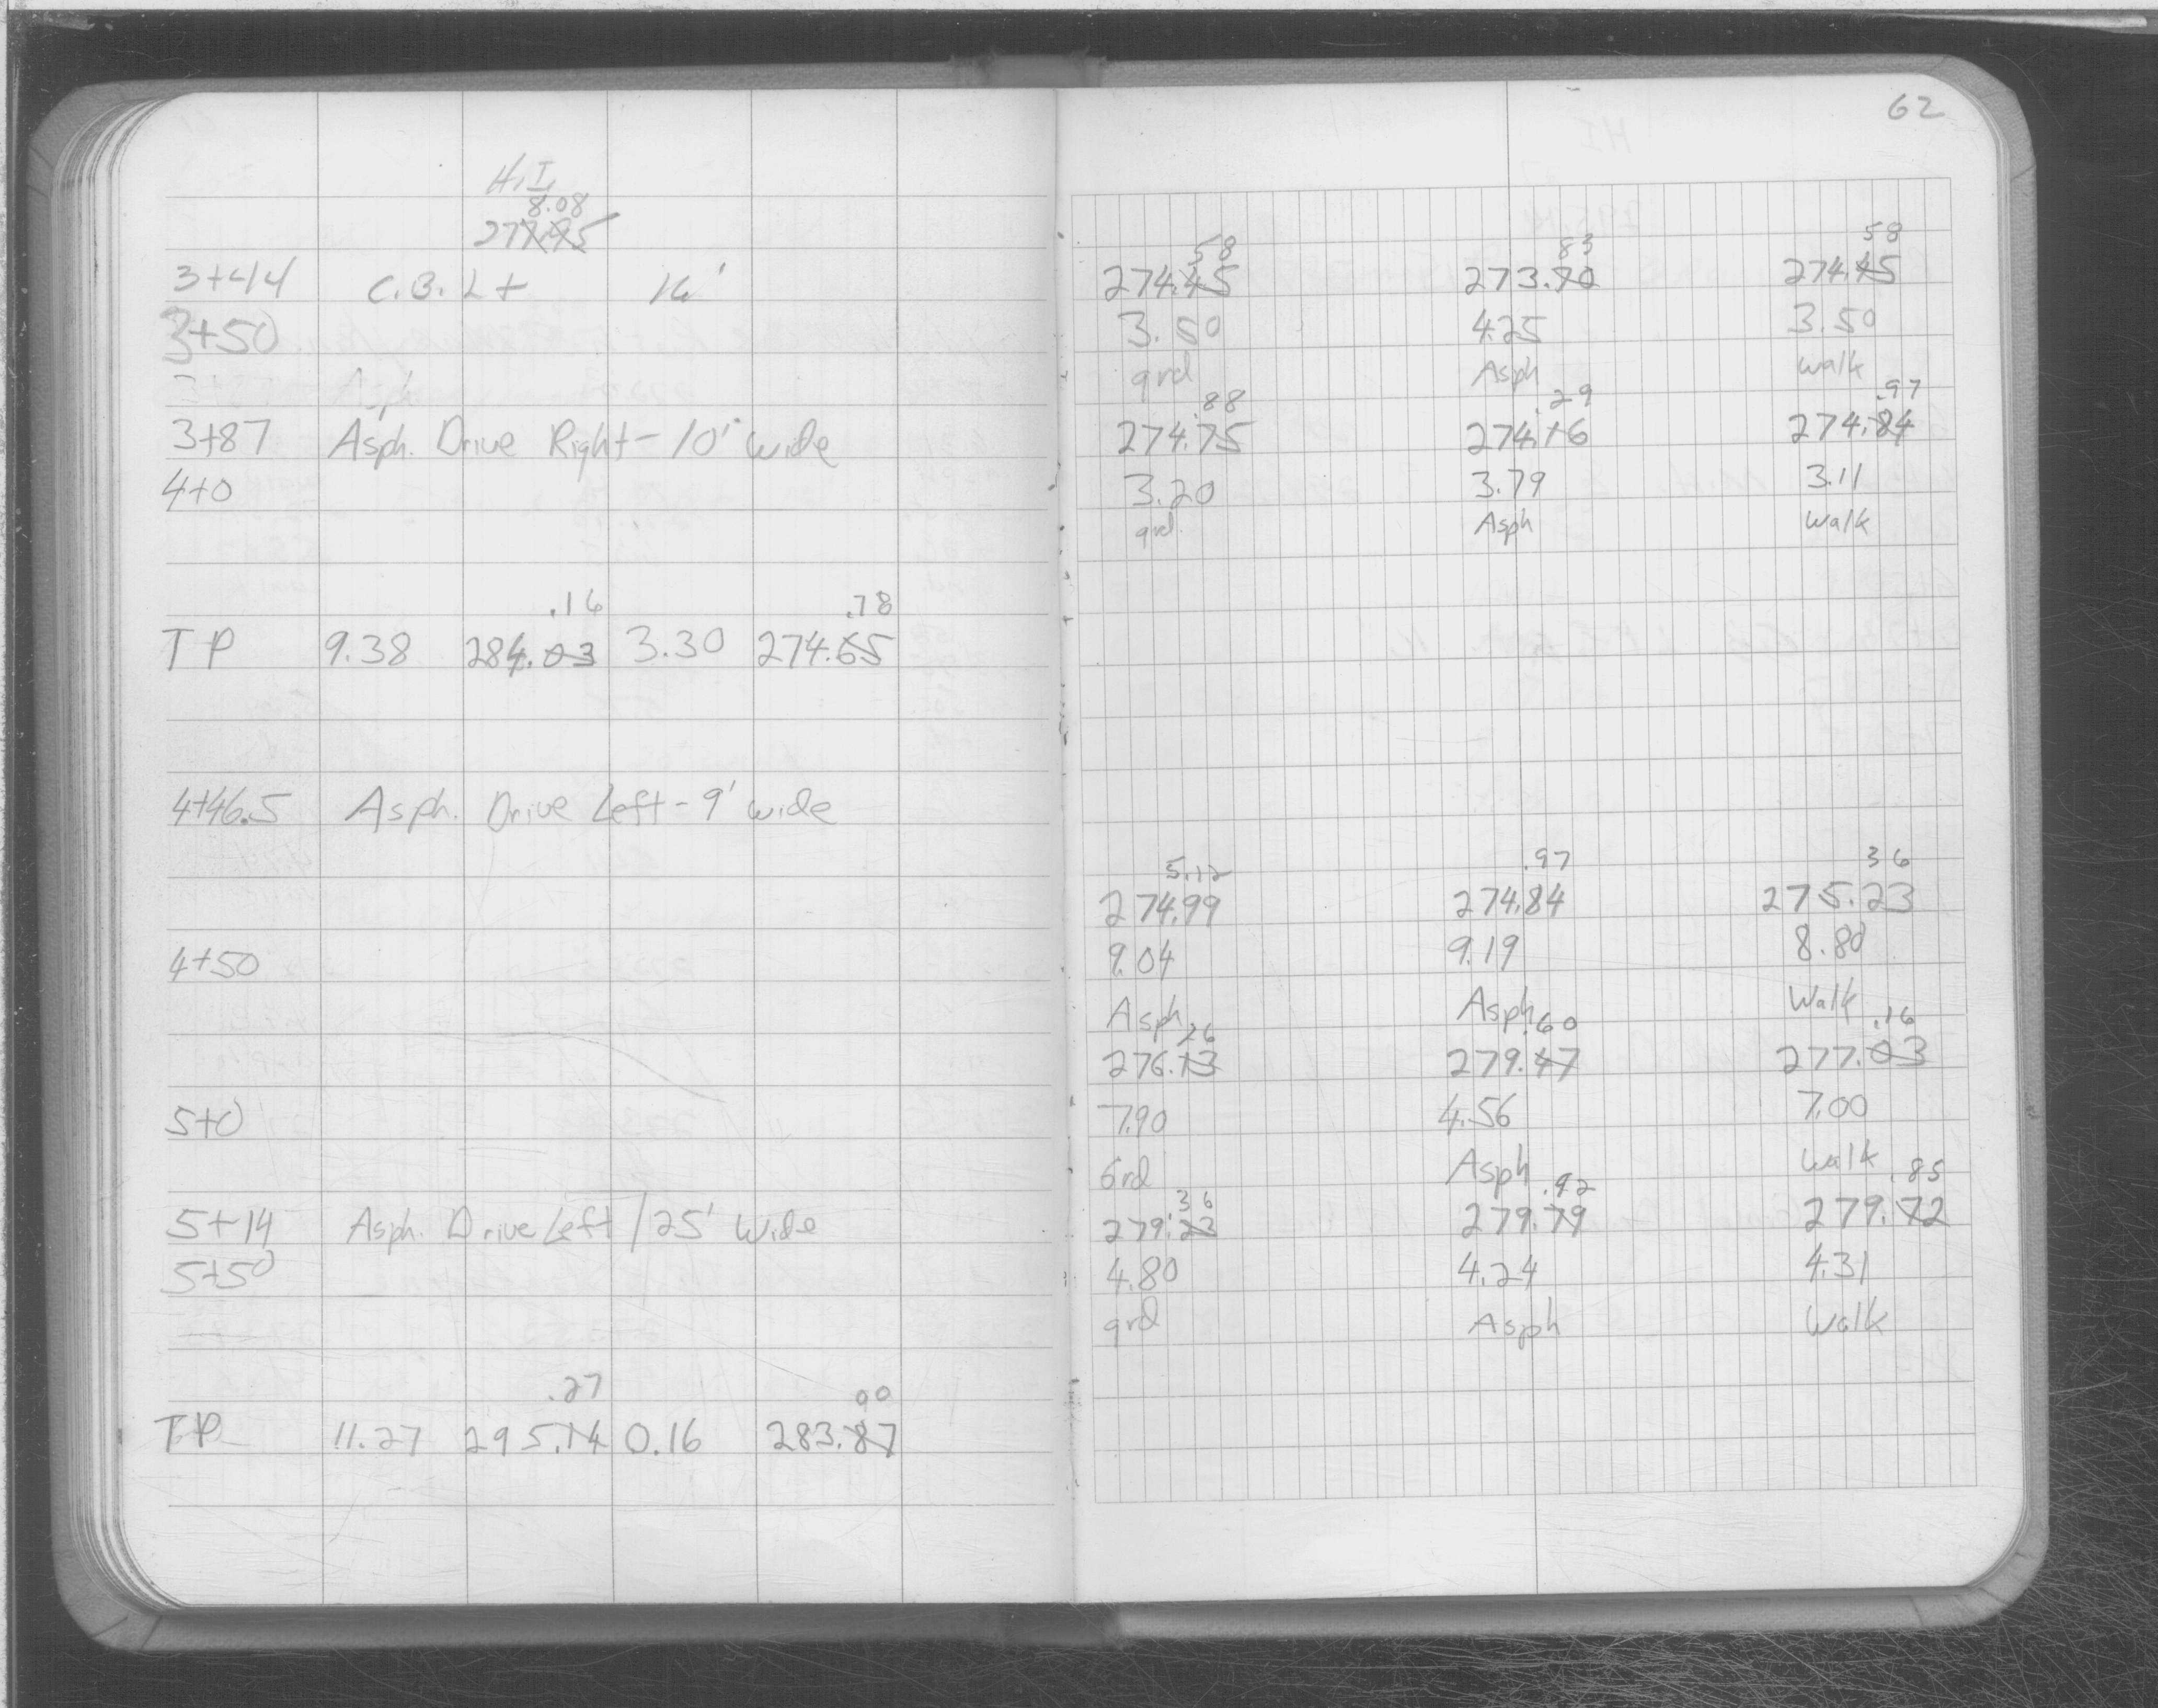 62
H.I.
8.08
277.95
3+44 C.B. Lt 16'
3+50
3+87 Asph. Drive Right - 10' wide
4+0
.16 .78
TP 9.38 284.03 3.30 274.65
4+46.5 Asph. Drive Left - 9' wide
4+50
5+0
5+14 Asph. Drive Left / 25' Wide
5+50
.27 00
TP 11.27 295.14 0.16 283.87
58 83 58
274.45 273.70 274.45
3.50 4.25 3.50
grd Asph walk
.88 .29 .97
274.75 274.16 274.84
3.20 3.79 3.11
grd. Asph walk
5.12 .97 36
274.99 274.84 275.23
9.04 9.19 8.80
Asph Asph Walk
26 .60 .16
276.13 279.47 277.03
7.90 4.56 7.00
Grd Asph walk
.36 .92 .85
279.23 279.79 279.72
4.80 4.24 4.31
grd Asph Walk